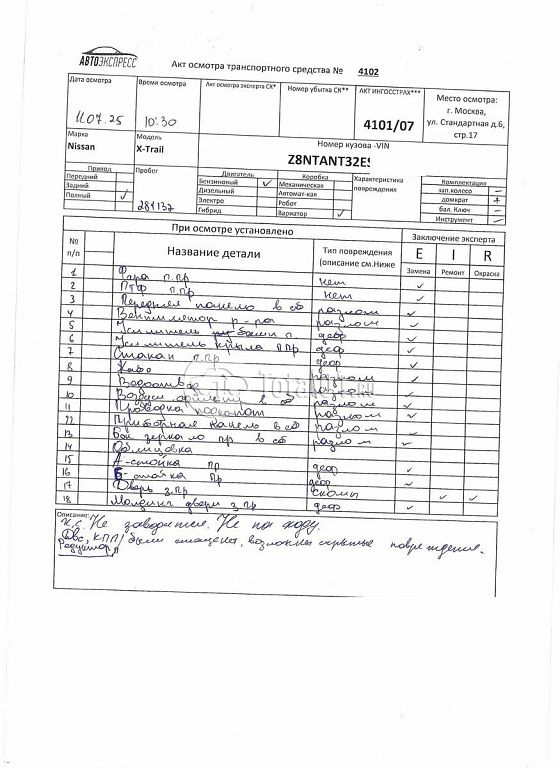 АВТОЭКСПРЕСС
Акт осмотра транспортного средства № 4102
Дата осмотра
11.07.25
Время осмотра
10:30
Акт осмотра эксперта СК*
Номер убытка СК**
АКТ ИНГОССТРАХ***
4101/07
Место осмотра:
г. Москва,
ул. Стандартная д.6,
стр.17
Марка
Nissan
Модель
X-Trail
Номер кузова -VIN
Z8NTANT32E
Привод
Передний
Задний
Полный ✓
Пробег
281137
Двигатель
Бензиновый ✓
Дизельный
Электро
Гибрид
Коробка
Механическая
Автомат-кая
Робот
Вариатор ✓
Характеристика
повреждения
Комплектация
зап.колесо –
домкрат +
бал. Ключ –
Инструмент –
При осмотре установлено
Заключение эксперта
№ п/п
Название детали
Тип повреждения
(описание см.Ниже
E I R
Замена Ремонт Окраска
1 Фара п.пр нет ✓
2 ПТФ п.пр нет ✓
3 Передняя панель в сб разлом ✓
4 Вентилятор р-ра разлом ✓
5 Усилитель п деф ✓
6 Усилитель крыла п пр деф ✓
7 Стакан п.пр деф ✓
8 разлом ✓
9 разлом ✓
10 в сб разлом ✓
11 Проводка разлом ✓
12 Приборная панель в сб разлом ✓
13 Бок зеркало пр в сб разлом ✓
14 Облицовка
15 А-стойка пр деф ✓
16 Б-стойка пр деф ✓
17 Дверь з.пр ✓ ✓
18 Молдинг двери з пр деф ✓
Описание:
Не заводится. Не на ходу.
Двс, КПП, были смещены, возможны скрытые повреждения.
Редуктор